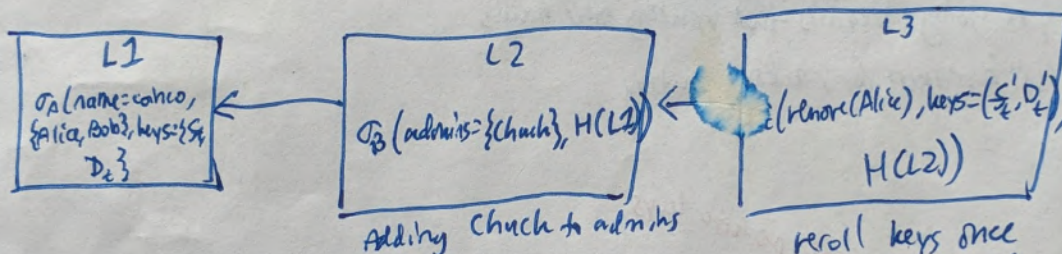 L1
σ_A(name=conco,
{Alice, Bob}, keys={S_t,
D_t}
L2
σ_B(admins={Chuck}, H(L1))
Adding Chuck to admins
L3
(remove(Alice), keys=(S_t', D_t'),
H(L2))
reroll keys once